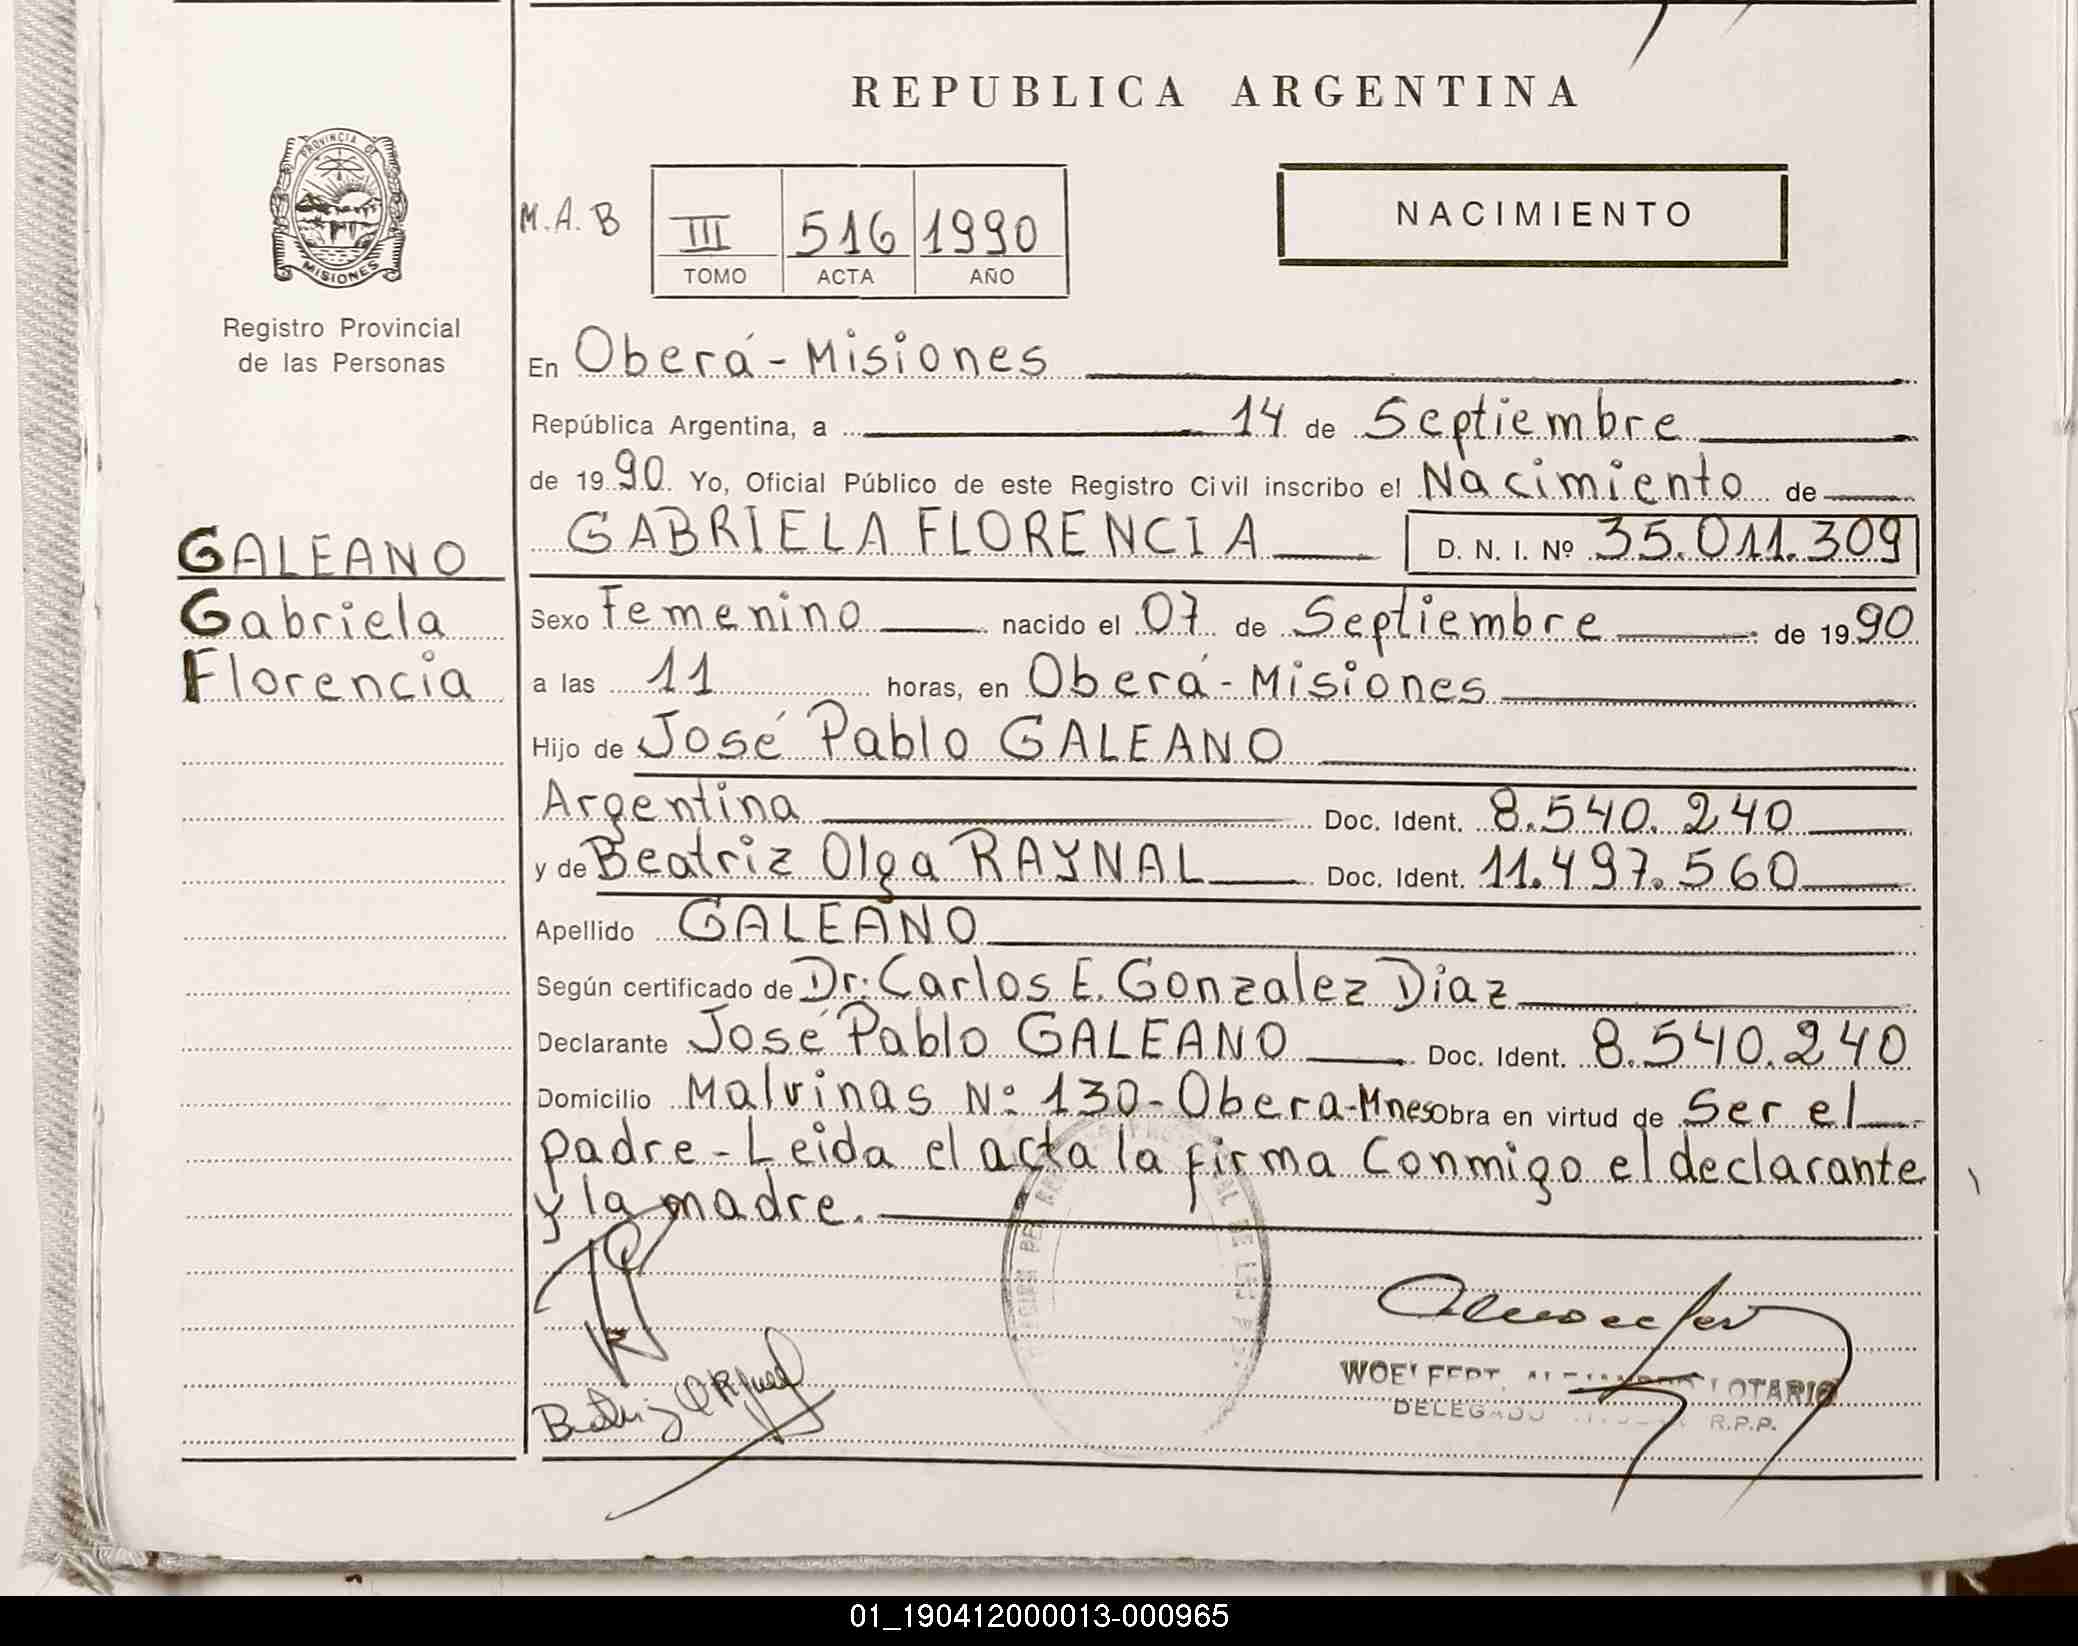 REPUBLICA ARGENTINA
PROVINCIA DE
MISIONES
Registro Provincial
de las Personas
M.A.B
III 516 1990
TOMO ACTA AÑO
NACIMIENTO
En Oberá - Misiones
República Argentina, a 14 de Septiembre
de 1990. Yo, Oficial Público de este Registro Civil inscribo el Nacimiento de
GABRIELA FLORENCIA D. N. I. Nº 35.011.309
GALEANO
Gabriela
Florencia
Sexo Femenino nacido el 07 de Septiembre de 1990
a las 11 horas, en Oberá - Misiones
Hijo de José Pablo GALEANO
Argentina Doc. Ident. 8.540.240
y de Beatriz Olga RAYNAL Doc. Ident. 11.497.560
Apellido GALEANO
Según certificado de Dr. Carlos E. Gonzalez Diaz
Declarante José Pablo GALEANO Doc. Ident. 8.540.240
Domicilio Malvinas Nº 130 - Obera - Mnes Obra en virtud de Ser el
padre - Leida el acta la firma Conmigo el declarante
y la madre.
DELEGADO R.P.P.
01_190412000013-000965